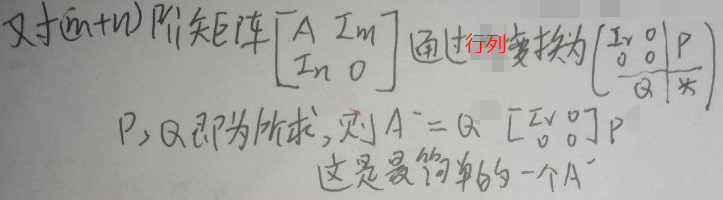 对(m+n)阶矩阵[A Im In 0]通过行列变换为(Ir 0 0 0 | P Q | *)
P,Q即为所求,则A⁻=Q [Ir 0 0 0]P
这是最简单的一个A⁻